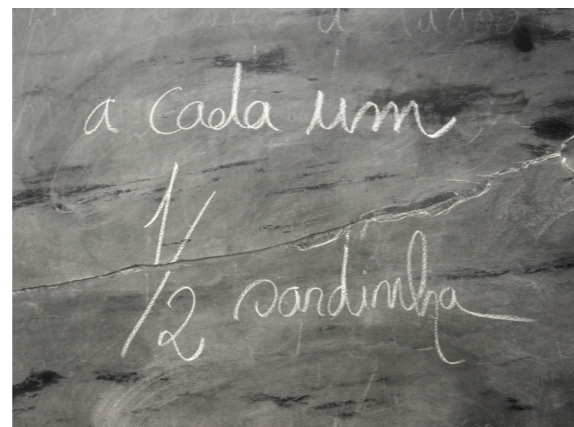 a cada um
1/2 sardinha